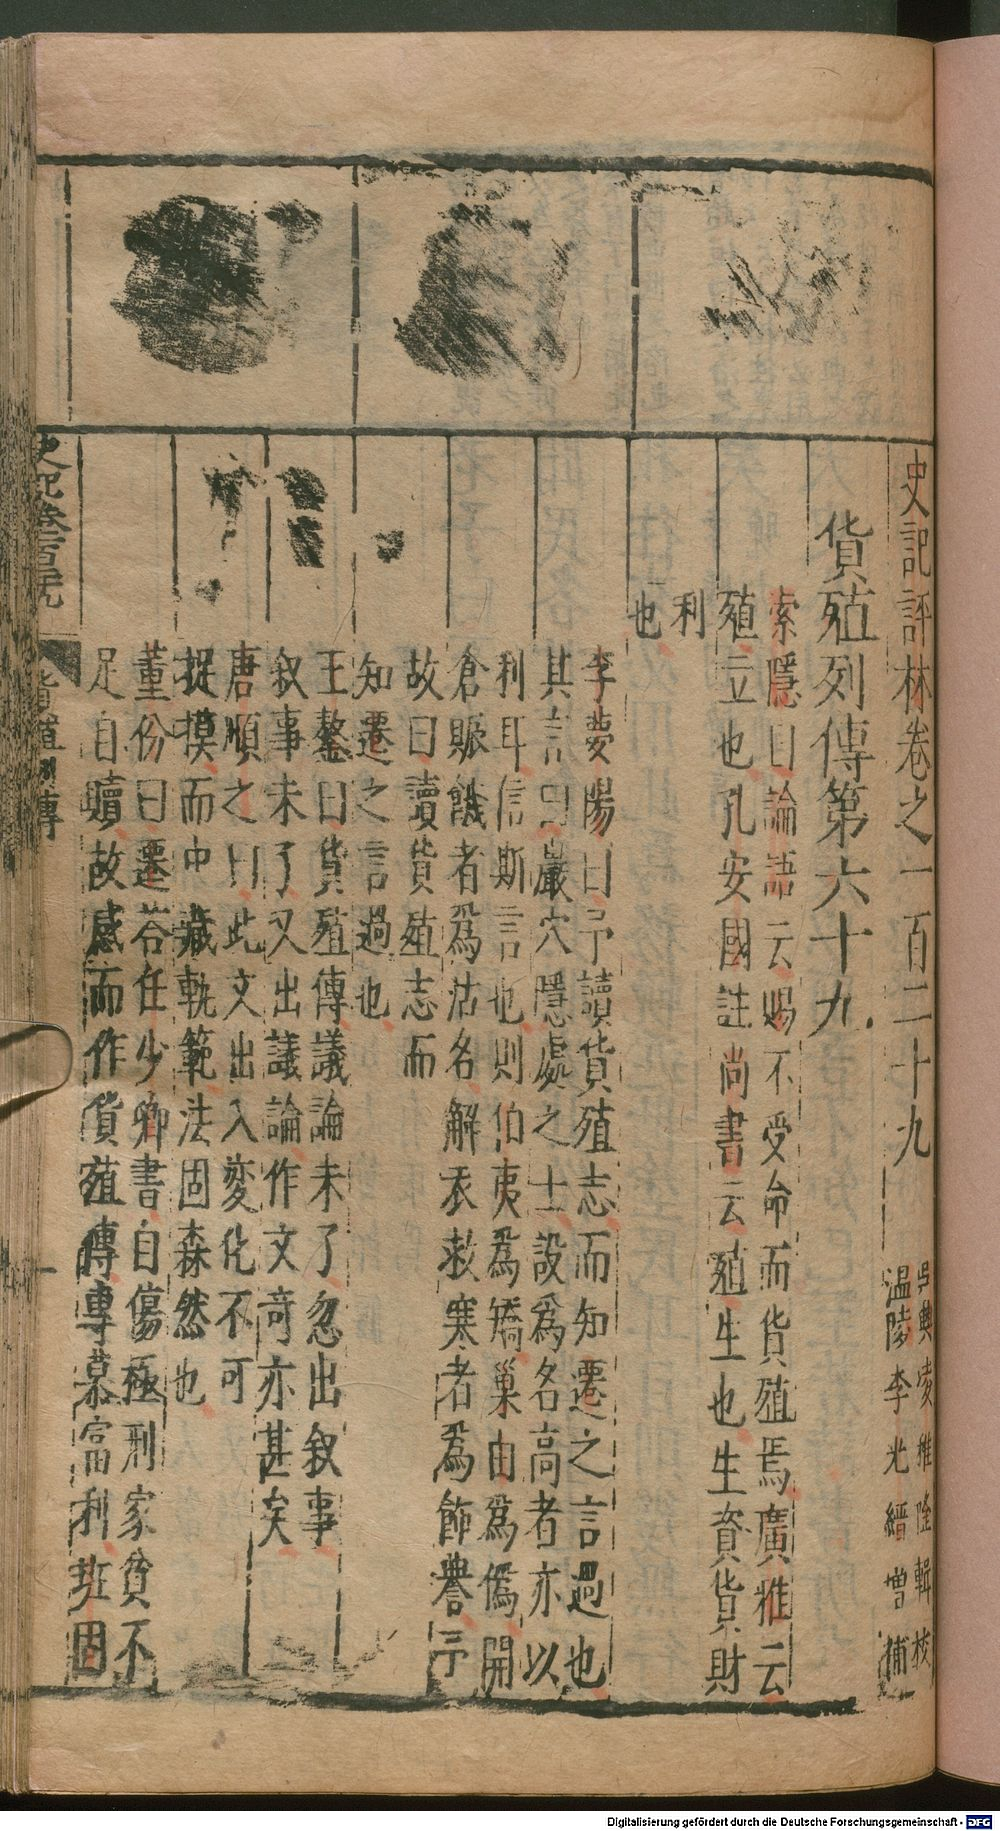 史記評林卷之一百二十九
吳興凌稚隆輯校
溫陵李光縉增補
貨殖列傳第六十九
索隱曰論語云賜不受命而貨殖焉廣雅云
殖立也孔安國註尚書云殖生也生資貨財
利
也
李夢陽曰予讀貨殖志而知遷之言過也
其言曰巖穴隱處之士設為名高者亦以
利耳信斯言也則伯夷為矯巢由為偽開
倉賑饑者為沽名解衣救寒者為飾譽予
故曰讀貨殖志而
知遷之言過也
王鏊曰貨殖傳議論未了忽出叙事
叙事未了又出議論作文奇亦甚矣
唐順之曰此文出入変化不可
捉摸而中藏軌範法固森然也
董份曰遷荅任少卿書自傷極刑家貧不
足自贖故感而作貨殖傳專慕富利班固
史記卷百廿九
貨殖列傳
一
Digitalisierung gefördert durch die Deutsche Forschungsgemeinschaft - DFG